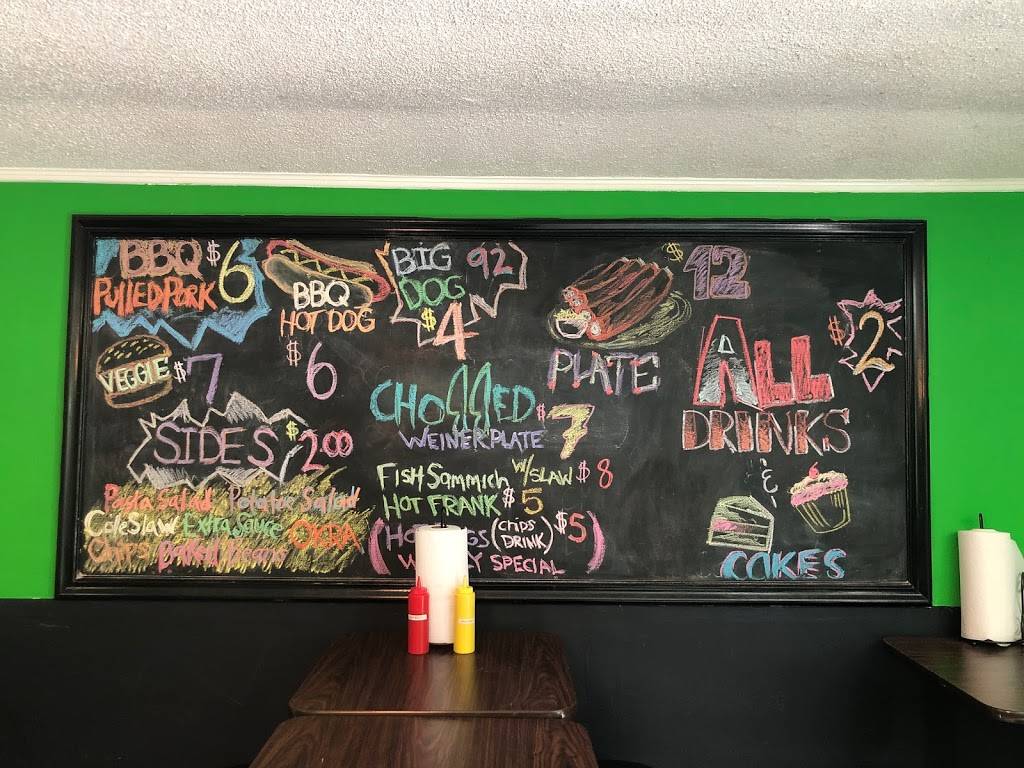 BBQ $6
PULLED PORK
BBQ
HOT DOG
$6
BIG 92
DOG
$4
$12
PLATE
VEGGIE $7
SIDES $2.00
Pasta Salad Potatoe Salad
ColeSlaw Extra Sauce OKRA
Chips Baked Beans
CHOPPED
WEINER PLATE $7
FISH SAMMICH W/SLAW $8
HOT FRANK $5
(chips DRINK) $5
SPECIAL
ALL $2
DRINKS
&
CAKES